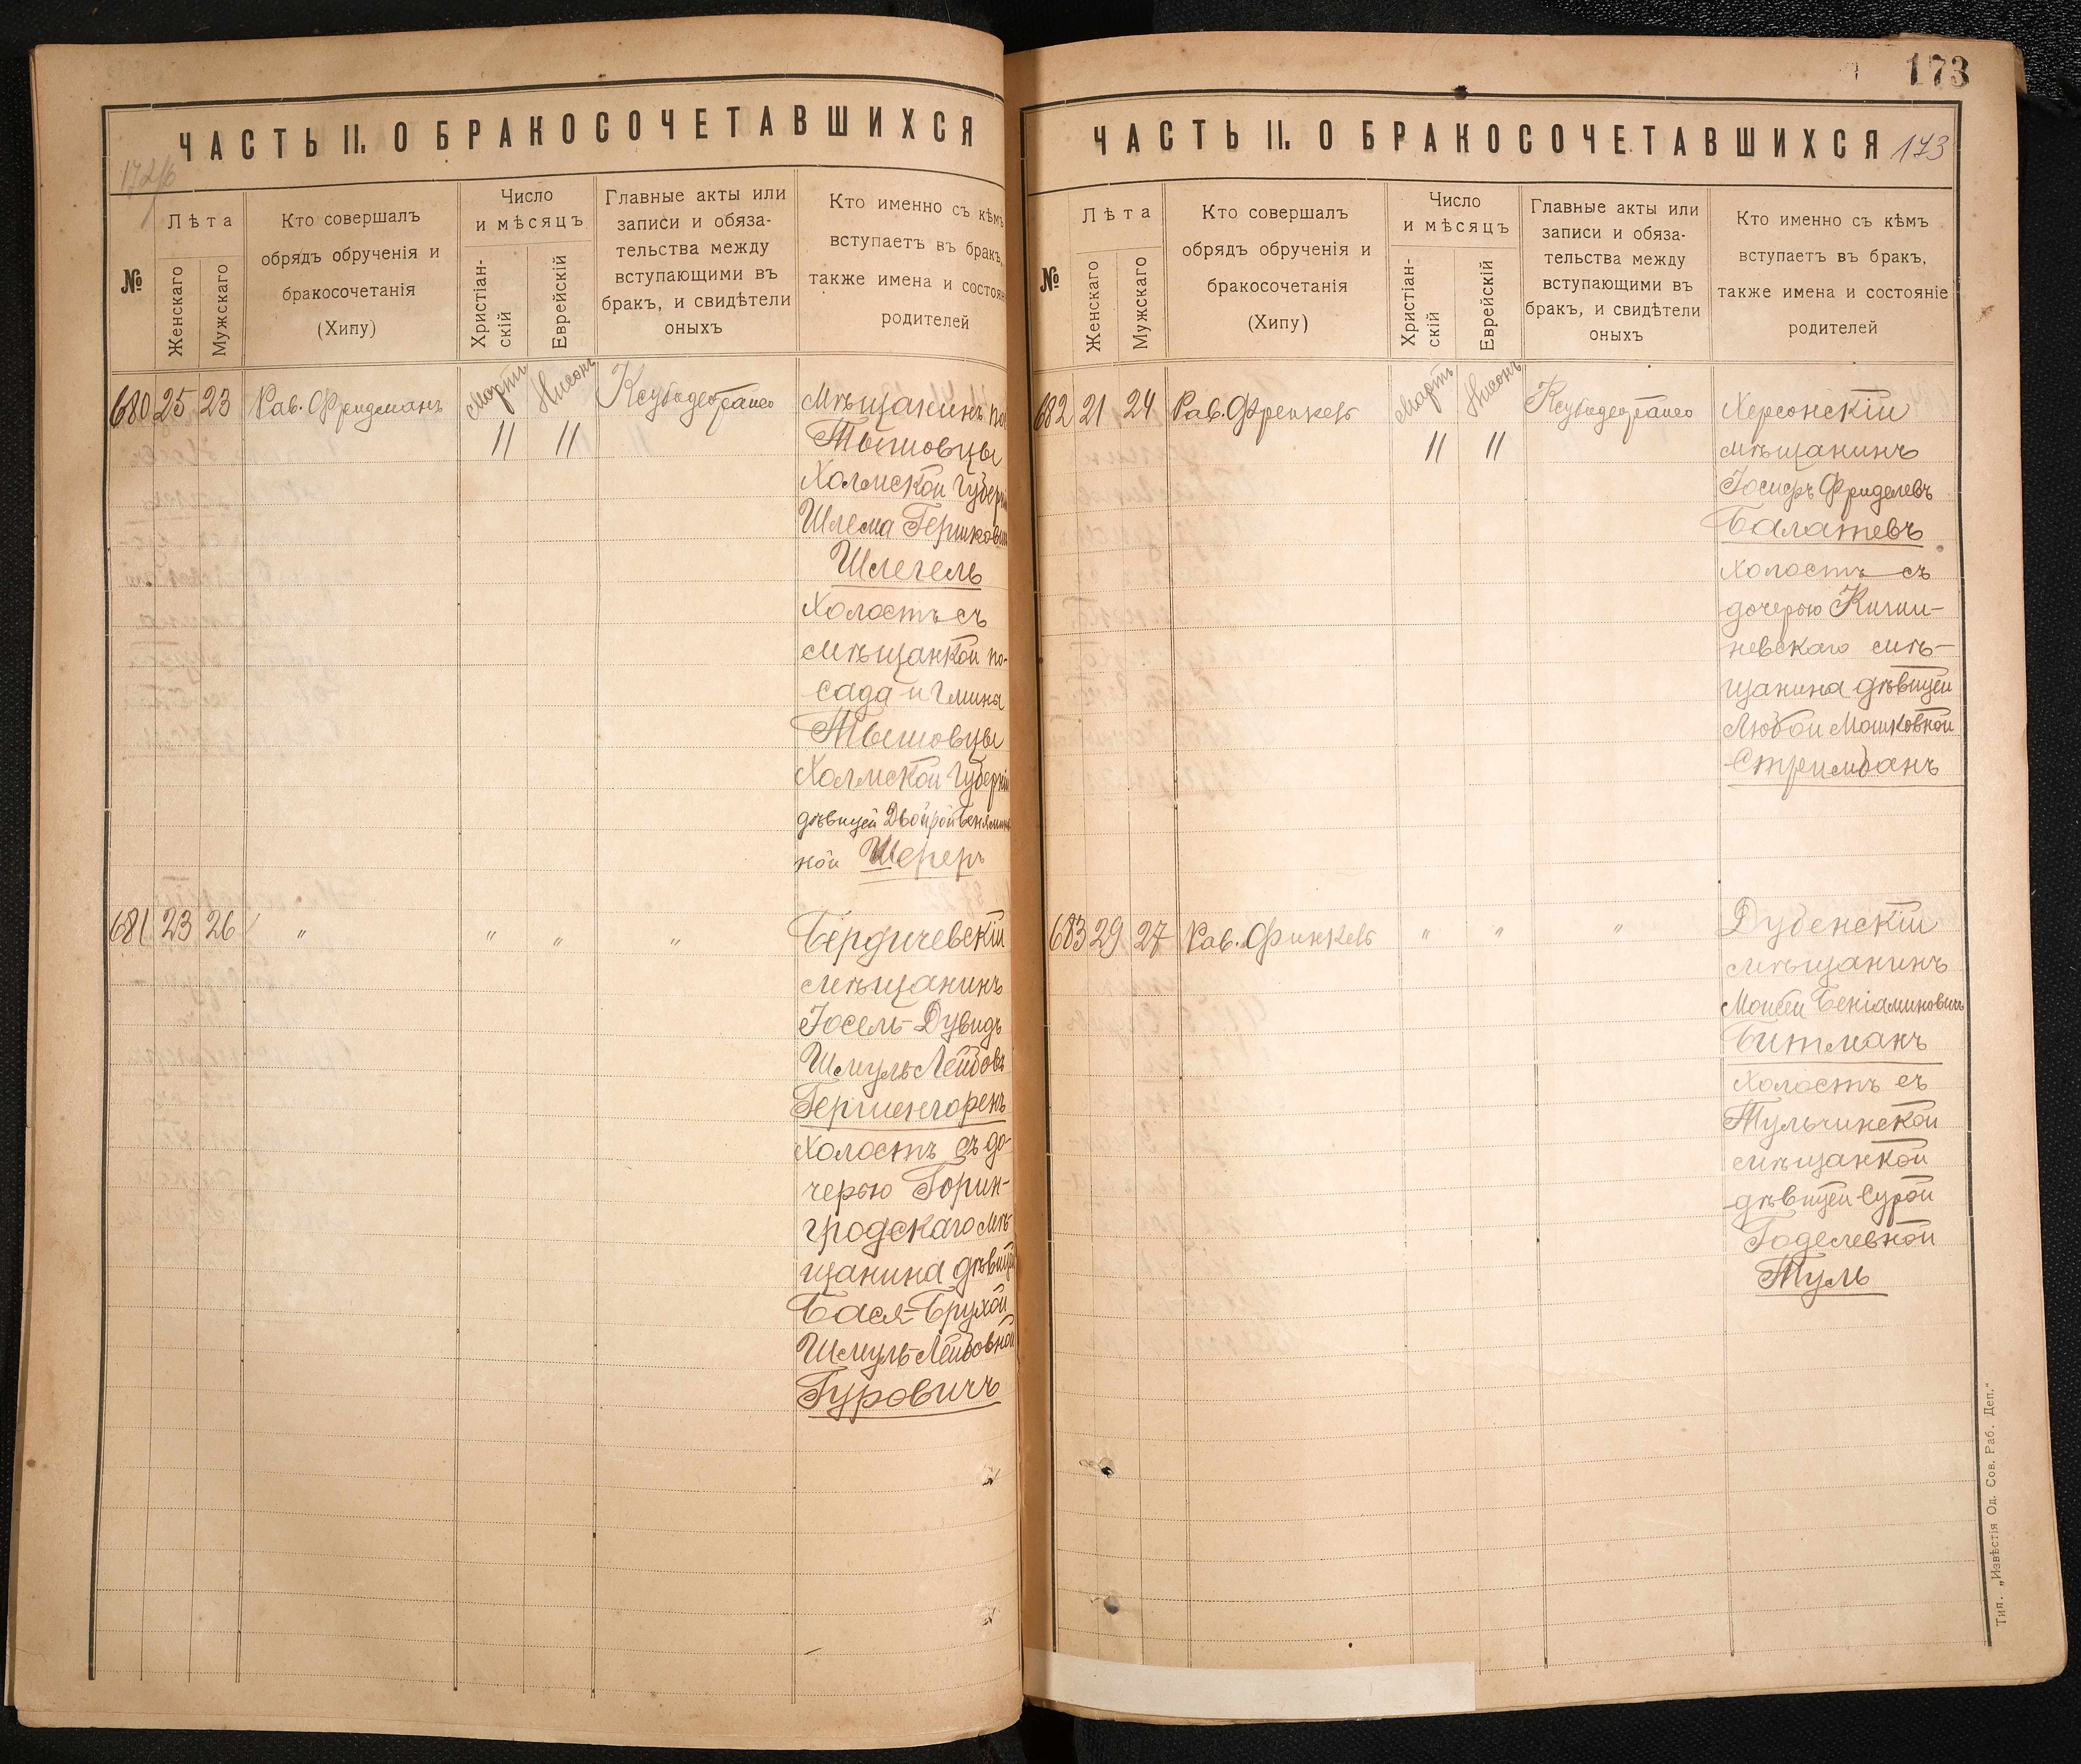 ЧАСТЬ II. О БРАКОСОЧЕТАВШИХСЯ
172/б
№
Лѣта
Женскаго
Мужскаго
Кто совершалъ
обрядъ обрученія и
бракосочетанія
(Хипу)
Число
и мѣсяцъ
Христіан-
скій
Еврейскій
Главные акты или
записи и обяза-
тельства между
вступающими въ
бракъ, и свидѣтели
оныхъ
Кто именно съ кѣмъ
вступаетъ въ бракъ,
также имена и состоян
родителей
680 25 23 Рав. Фридманъ Мартъ Нисонъ
11 11
Мѣщанинъ пос
Тышовцы
Холмской Губерн
Шлема Гершкович
Шлегель
Холостъ съ
мѣщанкой по-
сада и Гмина
Тышовцы
Холмской Губерніи
дѣвицей Двойрой Венямин
ной Шереръ
681 23 26 " " " "
Бердичевскій
мѣщанинъ
Іосель-Дувидъ
Шмуль-Лейбовъ
Гершенгоренъ
Холостъ съ до-
черью Горин-
гродскаго мѣ-
щанина дѣвицей
Бася-Брухой
Шмуль-Лейбовной
Гуровичъ
173
ЧАСТЬ II. О БРАКОСОЧЕТАВШИХСЯ
173
№
Лѣта
Женскаго
Мужскаго
Кто совершалъ
обрядъ обрученія и
бракосочетанія
(Хипу)
Число
и мѣсяцъ
Христіан-
скій
Еврейскій
Главные акты или
записи и обяза-
тельства между
вступающими въ
бракъ, и свидѣтели
оныхъ
Кто именно съ кѣмъ
вступаетъ въ бракъ,
также имена и состояніе
родителей
682 21 24 Рав. Френкель Мартъ Нисонъ
11 11
Херсонскій
мѣщанинъ
Іосифъ Фриделевъ
Балатевъ
Холостъ съ
дочерью Киши-
невскаго мѣ-
щанина дѣвицей
Любой Мошковной
Стримбанъ
683 29 27 Рав. Финкель " " "
Дубенскій
мѣщанинъ
Моисей Беніаминовичъ
Битманъ
Холостъ съ
Тульчинской
мѣщанкой
дѣвицей Сурой
Годелевной
Туль
Тип. „Извѣстія Од. Сов. Раб. Деп."